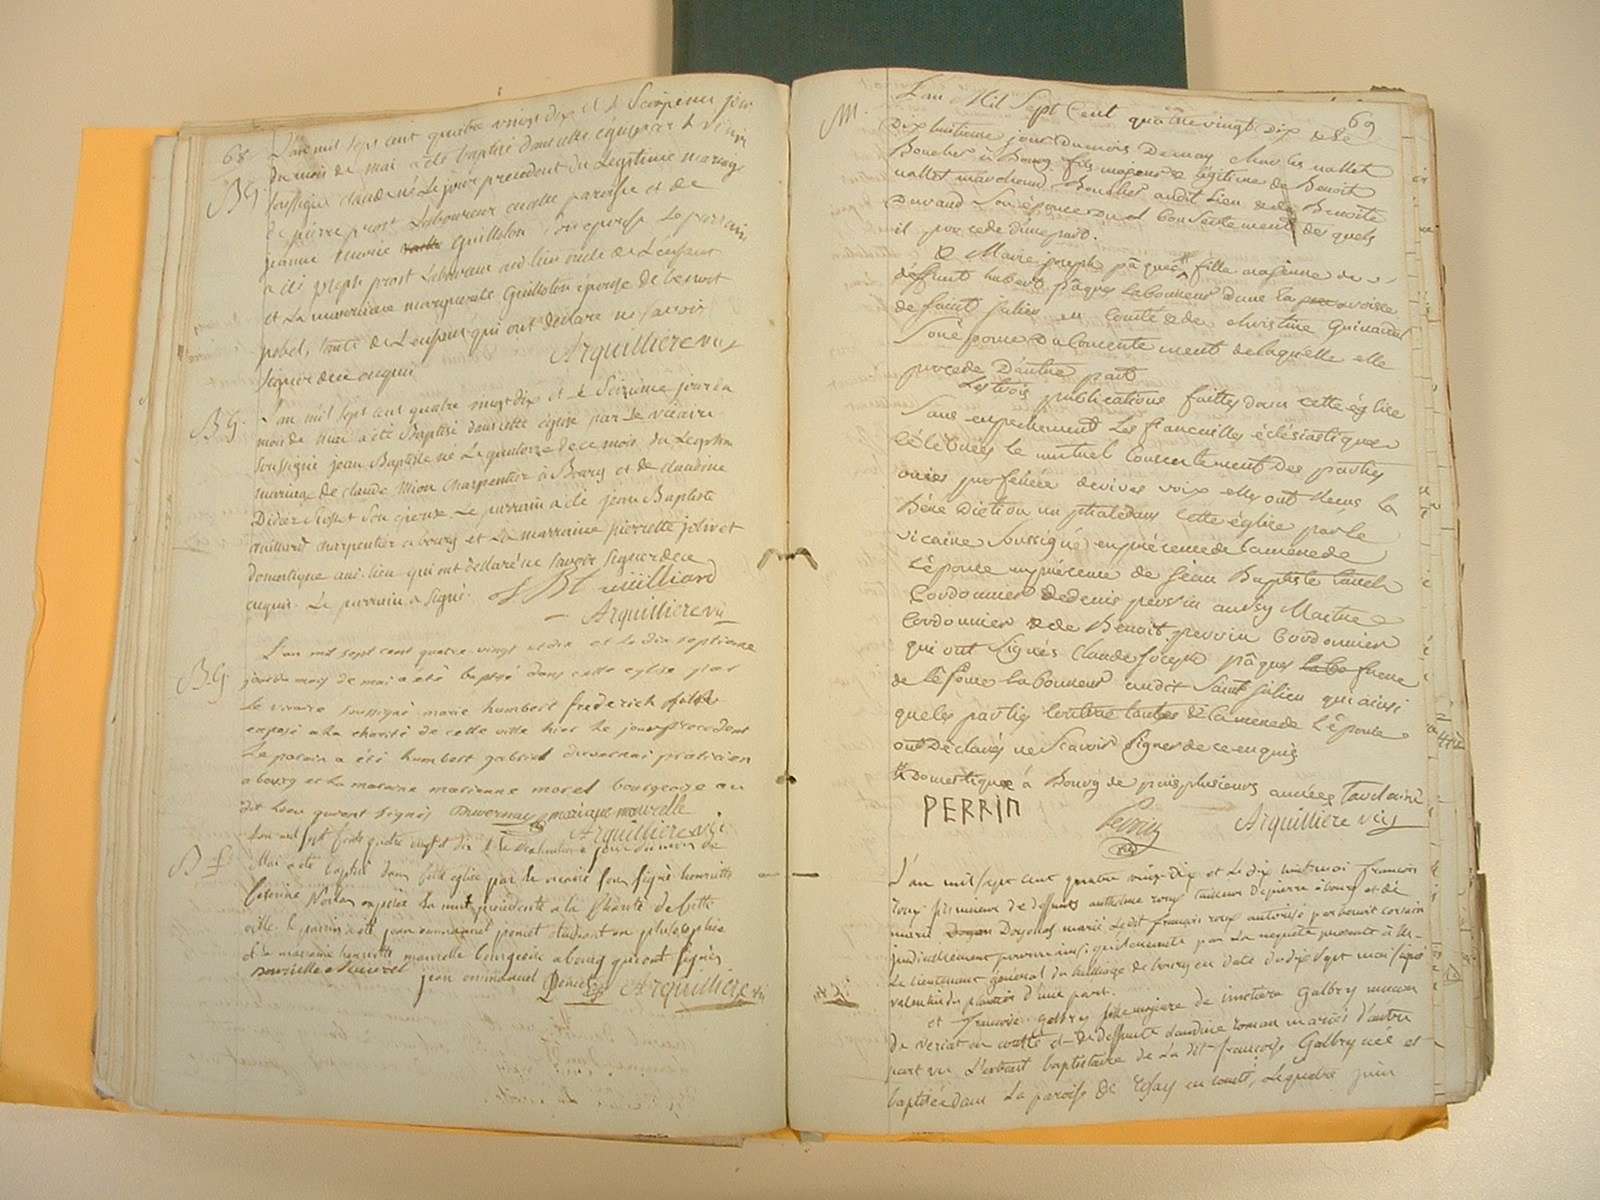 68
L'an mil sept cent quatre vingt dix et le Seizieme jour
du mois de mai a été baptisé dans cette église par le vicaire
BG soussigné claude né Le jour précédent du Légitime mariage
de pierre prost Laboureur en cette paroisse et de
jeanne marie Guillston son épouse Le parrain
a été joseph prost Laboureur audit lieu oncle de L'enfant
et La marraine marguerite Guillston épouse de benoit
tante de L'enfant qui ont déclaré ne savoir
signer de ce enquis Arquilliere vic
BG L'an mil sept cent quatre vingt dix et le Seizieme jour du
mois de mai a été Baptisé dans cette église par le vicaire
soussigné jean Baptiste né Le quatorze de ce mois du Legitime
mariage de claude Mion charpentier à Bourg et de claudine
Didier son épouse. Le parrain a été jean Baptiste
cuilliard charpentier a bourg et La marraine pierrette jolivet
Domestique aud. lieu qui ont déclaré ne savoir signer de ce
enquis. Le parrain a signé. J B cuilliard
Arquilliere vic
BG L'an mil sept cent quatre vingt et dix et le dix septieme
jour du mois de mai a été baptisé dans cette eglise par
le vicaire soussigné marie humbert frederich
exposé a la charité de cette ville hier le jour precedent
Le parain a été humbert gabriel duvernai praticien
a bourg et La maraine marianne morel bourgeoise au
dit Lieu qui ont signés Duvernay
Arquilliere vic
B f L'an mil sept cents quatre vingt et dix et le dixhuitieme jour du mois de
Mai a été baptisé dans cette église par le vicaire soussigné henriette
exposée La nuit précédente a la charité de cette
ville. le parrain a été jean emmanuel poncet étudiant en philosophie
et la marraine henriette bourgeoise a bourg qui ont signés
jean emmanuel Poncet Arquilliere vic
69
M. L'an Mil Sept Cent quatrevingt dix & le
Dix huitieme jour du mois De may Charles vallet
Boucher à Bourg fils majeur & légitime de Benoit
vallet marchand Boucher audit Lieu & de Benoite
Durand Son épouse du Consentement des quels
il procede d'une part.
& Marie joseph pâques # fille majeure de
deffunt hubert pâques laboureur dans la paroisse
de Saint julien en Comté & de christine
Son épouse Du Consentement de laquelle elle
procede D'autre part
Les trois publications faittes dans cette église
Sans empechement Les fiancailles éclésiastiques
Célébrées le mutuel Consentement Des parties
ouies proférée de vives voix elles ont Recus la
Béné Diction nuptiale dans Cette église par le
vicaire Soussigné en présence de la mère de
L'épouse en présence de Jean Baptiste
Cordonnier & de denis perrin aussy Maitre
Cordonnier & de Benoit perrin Cordonnier
qui ont Signés Claude joseph pâques frere
de l'épouse laboureur audit Saint julien qui ainsi
que les parties & la mère de L'épouse
ont Déclarés ne Scavoir Signer de ce enquis
# domestique à Bourg depuis plusieurs années
PERRIN Perrin Arquilliere vic
L'an mil sept cent quatre vingt dix et Le dix huit mai francois
roux fils mineur de deffunts anthelme roux tailleur d'pierre à bourg et de
marie mariés Ledit françois roux autorisé par benoit
judiciairement pour ainsi qu'il conste par La requete presenté à M.
Le Lieutenant général du bailliage de bourg en date du dix sept mai signé
d'une part.
et francoise galbry fille majeure de Galbry
De en comté et de deffunte claudine mariés d'autre
part vu L'extrait baptistaire de La dit francoise Galbry née et
baptisée dans La paroisse de en comté, Le quatre juin